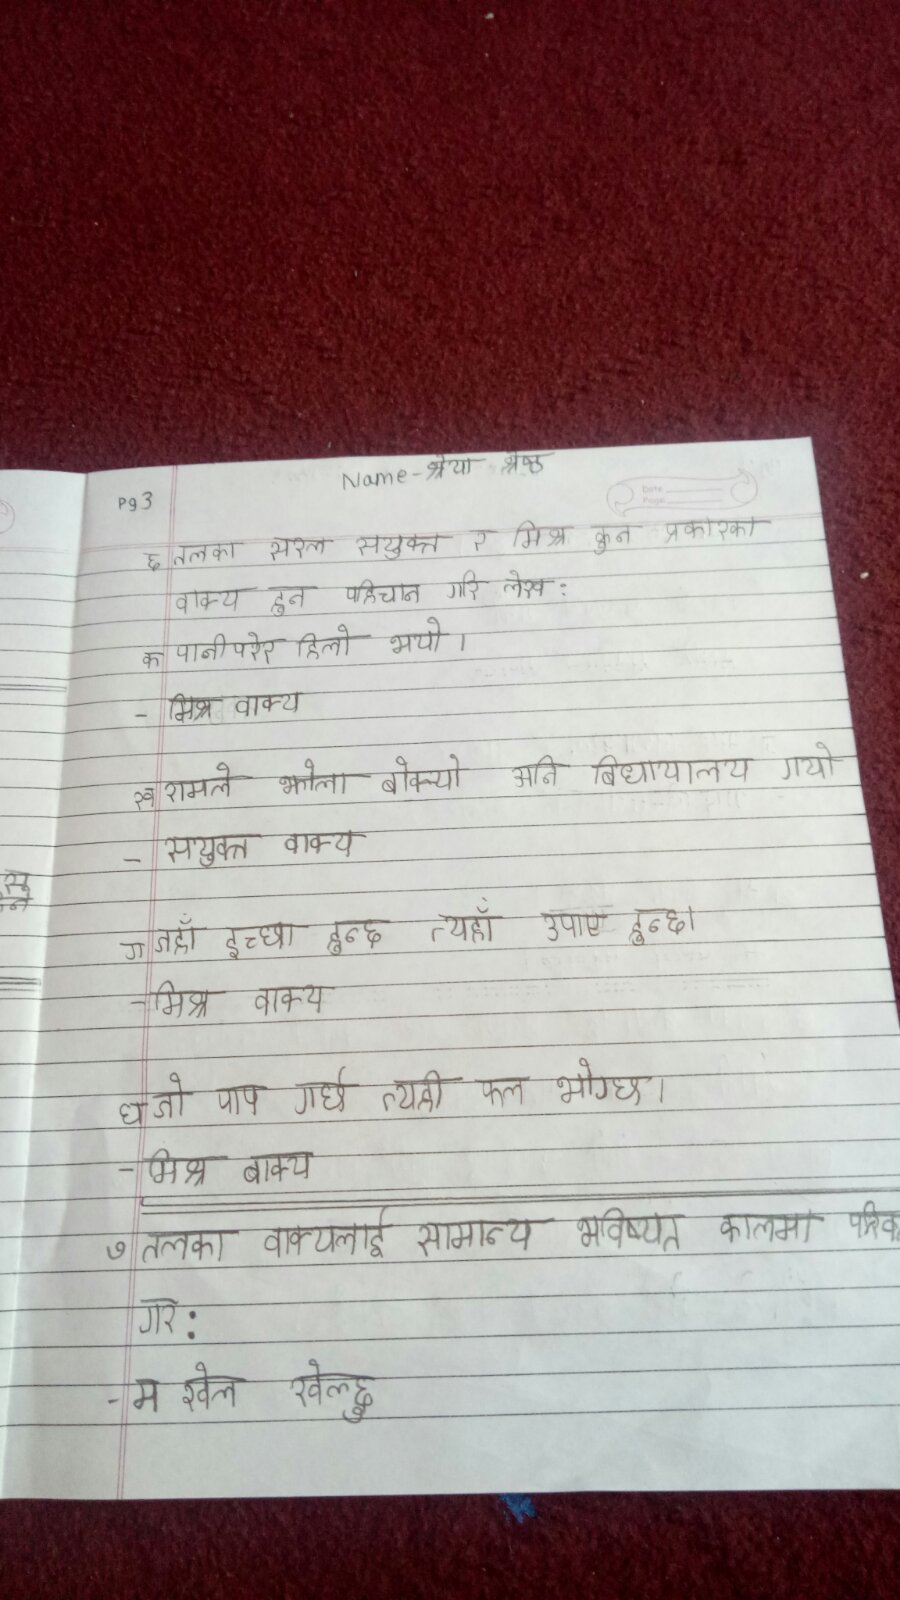 Name-श्रेया श्रेष्ठ
Pg 3
Date
Page
६ तलका सरल सयुक्त र मिश्र कुन प्रकारका
वाक्य हुन पहिचान गरि लेख :
क पानीपरेर हिलो भयो ।
- मिश्र वाक्य
ख रामले झोला बोक्यो अनि बिधायालय गयो
- सयुक्त वाक्य
ग जहाँ इच्छा हुन्छ त्यहाँ उपाए हुन्छ।
- मिश्र वाक्य
घ जो पाप गर्छ त्यही फल भोग्छ ।
- मिश्र बाक्य
७ तलका वाक्यलाई सामान्य भविष्यत कालमा
गर :
- म खेल खेल्छु